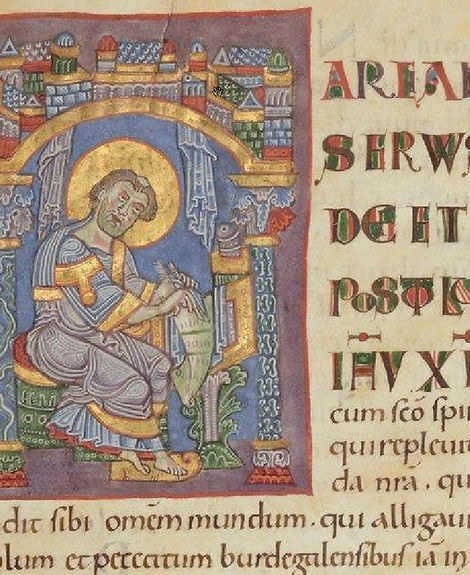 SERWS
DE ET
POSTO
IHV XI
cum scō spi
qui repleuit
da nrā . qu
dit sibi omēm mundum . qui alligaui
olum et peccatum burdegalensibus iā in